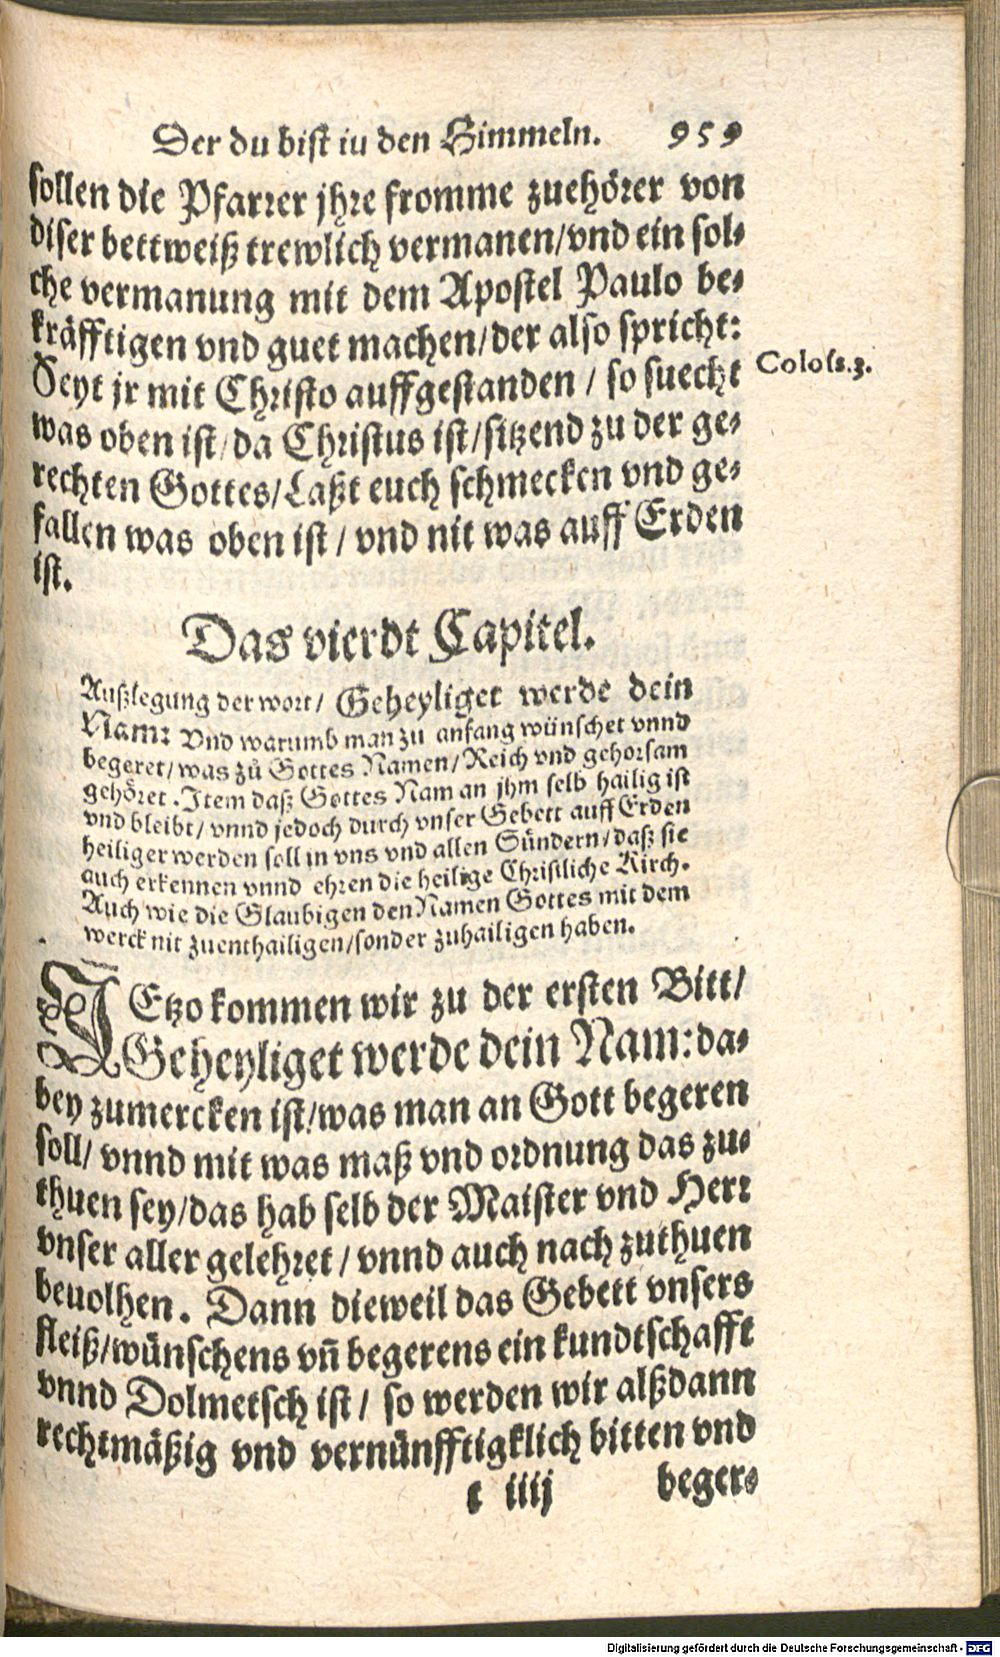 Der du bist iu den Himmeln. 959
sollen die Pfarrer jhre fromme zuehörer von
diser bettweiß trewlich vermanen/vnd ein sol⸗
che vermanung mit dem Apostel Paulo be⸗
kräfftigen vnd guet machen/der also spricht:
Seyt jr mit Christo auffgestanden / so suecht
Colols.3.
was oben ist/da Christus ist/sitzend zu der ge⸗
rechten Gottes/Laßt euch schmecken vnd ge⸗
fallen was oben ist / vnd nit was auff Erden
ist.
Das vierdt Capitel.
Außlegung der wort/ Geheyliget werde dein
Nam: Vnd warumb man zu anfang wünschet vnnd
begeret/was zů Gottes Namen/Reich vnd gehorsam
gehöret. Item daß Gottes Nam an jhm selb hailig ist
vnd bleibt/ vnnd jedoch durch vnser Gebett auff Erden
heiliger werden soll in vns vnd allen Sündern/daß sie
auch erkennen vnnd ehren die heilige Christliche Kirch.
Auch wie die Glaubigen den Namen Gottes mit dem
werck nit zuenthailigen/sonder zuhailigen haben.
IEtzo kommen wir zu der ersten Bitt/
Geheyliget werde dein Nam:da⸗
bey zumercken ist/was man an Gott begeren
soll/ vnnd mit was maß vnd ordnung das zu⸗
thuen sey/das hab selb der Maister vnd Herr
vnser aller gelehret / vnnd auch nach zuthuen
beuolhen. Dann dieweil das Gebett vnsers
fleiß/wünschens vñ begerens ein kundtschafft
vnnd Dolmetsch ist/ so werden wir alßdann
rechtmäßig vnd vernünfftigklich bitten vnd
t iiij beger⸗
Digitalisierung gefördert durch die Deutsche Forschungsgemeinschaft - DFG